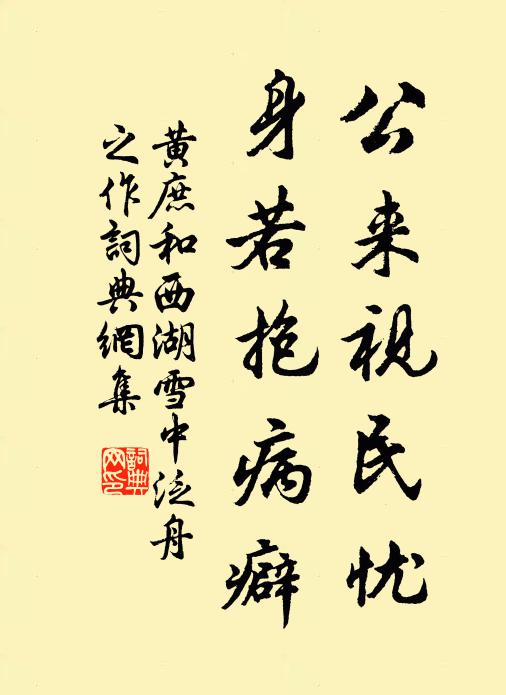 公来视民忧
身若抱病癖
黄庶和西湖雪中泛舟
之作词典網集
詞典
网印